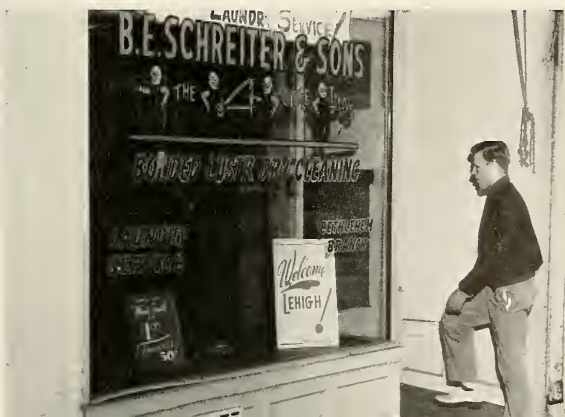 LAUNDRY SERVICE
B.E. SCHREITER & SONS
THE 4
BONDED LUSTR DRY CLEANING
LAUNDRY
SERVICE
BETHLEHEM
BRANCH
Welcome
LEHIGH!
50¢